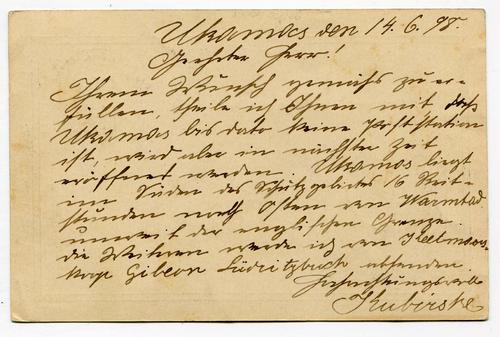 Ukamas den 14. 6. 98.
Geehrter Herr!
Ihrem Wunsch gemäß zu er-
füllen, theile ich Ihnen mit daß
Ukamas bis dato keine Poststation
ist, wird aber in nächster Zeit
eröffnet werden. Ukamas liegt
im Süden des Schutzgebietes 16 Reit-
stunden nach Osten von Warmbad
unweit der englischen Grenze.
die Weiteren werde ich von Keetmans-
hoop Gibeon Lüderitzbuch absenden.
Hochachtungsvoll
Kuberske